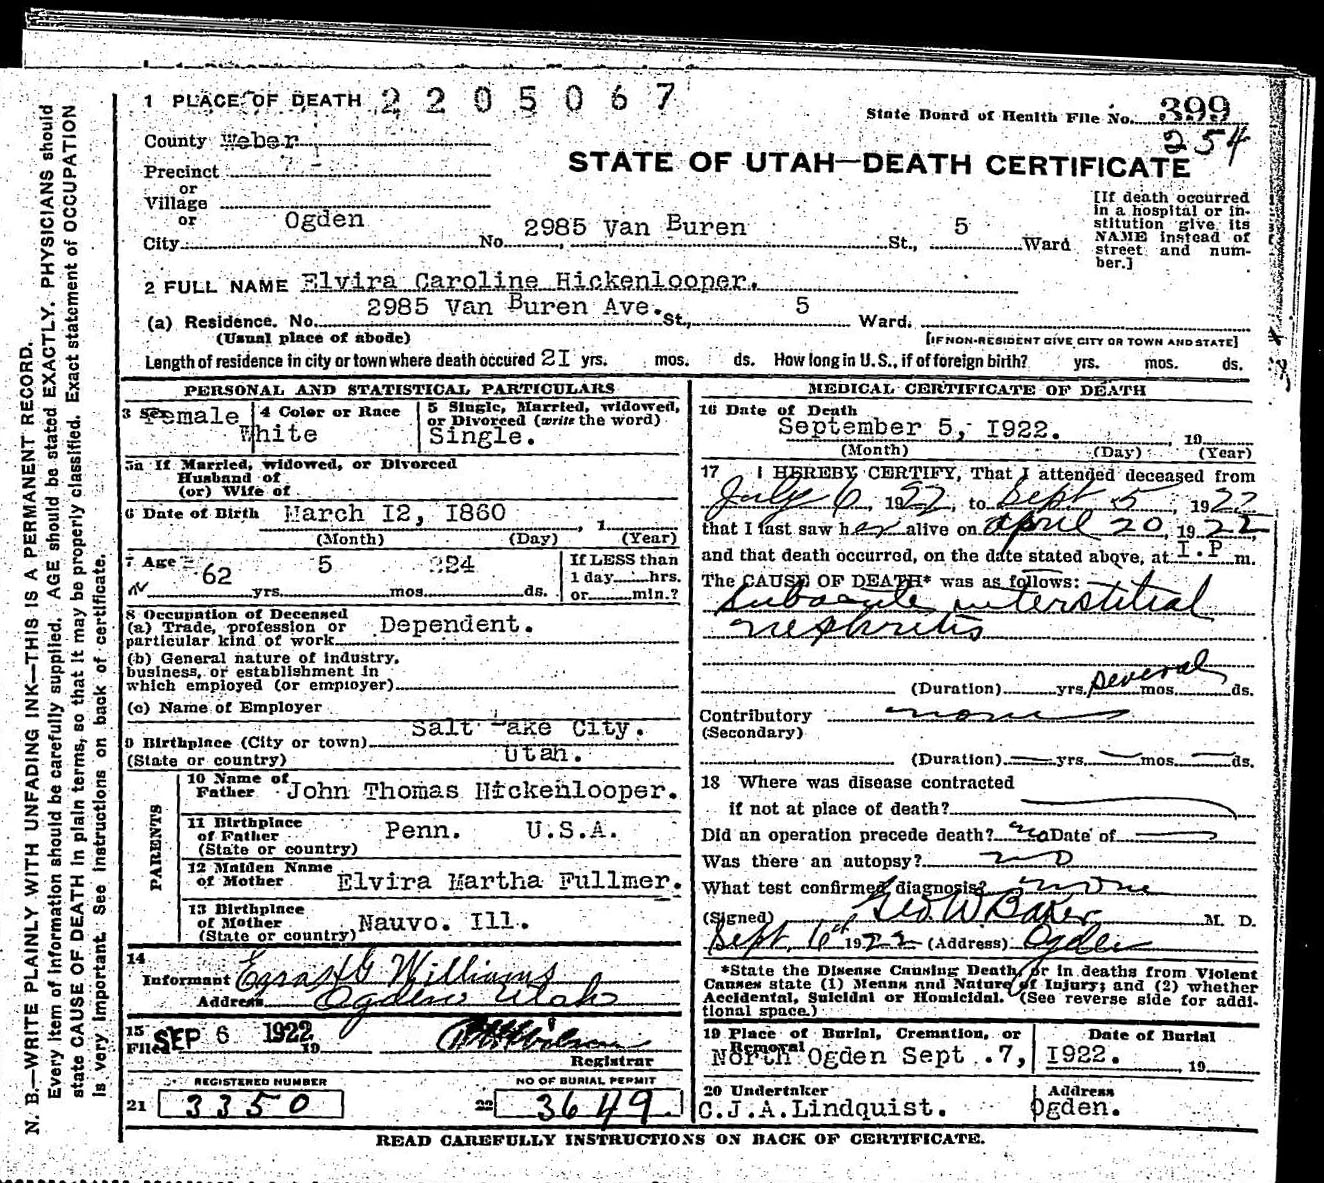 1 PLACE OF DEATH 2205067
State Board of Health File No. 399
254
County Weber
STATE OF UTAH—DEATH CERTIFICATE
Precinct
or
Village
or
City Ogden No. 2985 Van Buren St., 5 Ward
[If death occurred
in a hospital or in-
stitution give its
NAME instead of
street and num-
ber.]
2 FULL NAME Elvira Caroline Hickenlooper.
(a) Residence. No. 2985 Van Buren Ave. St., 5 Ward.
(Usual place of abode) [IF NON-RESIDENT GIVE CITY OR TOWN AND STATE]
Length of residence in city or town where death occured 21 yrs. mos. ds. How long in U.S., if of foreign birth? yrs. mos. ds.
PERSONAL AND STATISTICAL PARTICULARS
3 Sex Female
4 Color or Race White
5 Single, Married, widowed,
or Divorced (write the word)
Single.
5a If Married, widowed, or Divorced
Husband of
(or) Wife of
6 Date of Birth March 12, 1860, 1
(Month) (Day) (Year)
7 Age 62 yrs. 5 mos. 24 ds.
If LESS than
1 day hrs.
or min.?
8 Occupation of Deceased
(a) Trade, profession or
particular kind of work Dependent.
(b) General nature of industry,
business, or establishment in
which employed (or employer)
(c) Name of Employer
9 Birthplace (City or town) Salt ake City.
(State or country) Utah.
PARENTS
10 Name of
Father John Thomas Hickenlooper.
11 Birthplace
of Father Penn. U.S.A.
(State or country)
12 Maiden Name
of Mother Elvira Martha Fullmer.
13 Birthplace
of Mother Nauvo. Ill.
(State or country)
14
Informant Ezra G Williams
Address Ogden Utah
15
Filed SEP 6 1922 19
Registrar
REGISTERED NUMBER
21 3350
NO OF BURIAL PERMIT
22 3649
MEDICAL CERTIFICATE OF DEATH
16 Date of Death
September 5, 1922. , 19
(Month) (Day) (Year)
17 I HEREBY CERTIFY, That I attended deceased from
July 6, 1922, to Sept 5, 1922
that I last saw her alive on april 20, 1922,
and that death occurred, on the date stated above, at 1.P m.
The CAUSE OF DEATH* was as follows:
Subacute interstitial
nephritis
(Duration) yrs. several mos. ds.
Contributory none
(Secondary)
(Duration) — yrs. — mos. — ds.
18 Where was disease contracted
if not at place of death?
Did an operation precede death? no Date of —
Was there an autopsy? no
What test confirmed diagnosis? none
(Signed) Geo W Baker M. D.
Sept. 6th 1922 (Address) Ogden
*State the Disease Causing Death, or in deaths from Violent
Causes state (1) Means and Nature of Injury; and (2) whether
Accidental, Suicidal or Homicidal. (See reverse side for addi-
tional space.)
19 Place of Burial, Cremation, or
Removal
North Ogden Sept .7,
Date of Burial
1922. , 19
20 Undertaker
C.J.A.Lindquist.
Address
Ogden.
READ CAREFULLY INSTRUCTIONS ON BACK OF CERTIFICATE.
N. B.—WRITE PLAINLY WITH UNFADING INK—THIS IS A PERMANENT RECORD.
Every item of information should be carefully supplied. AGE should be stated EXACTLY. PHYSICIANS should
state CAUSE OF DEATH in plain terms, so that it may be properly classified. Exact statement of OCCUPATION
is very important. See instructions on back of certificate.